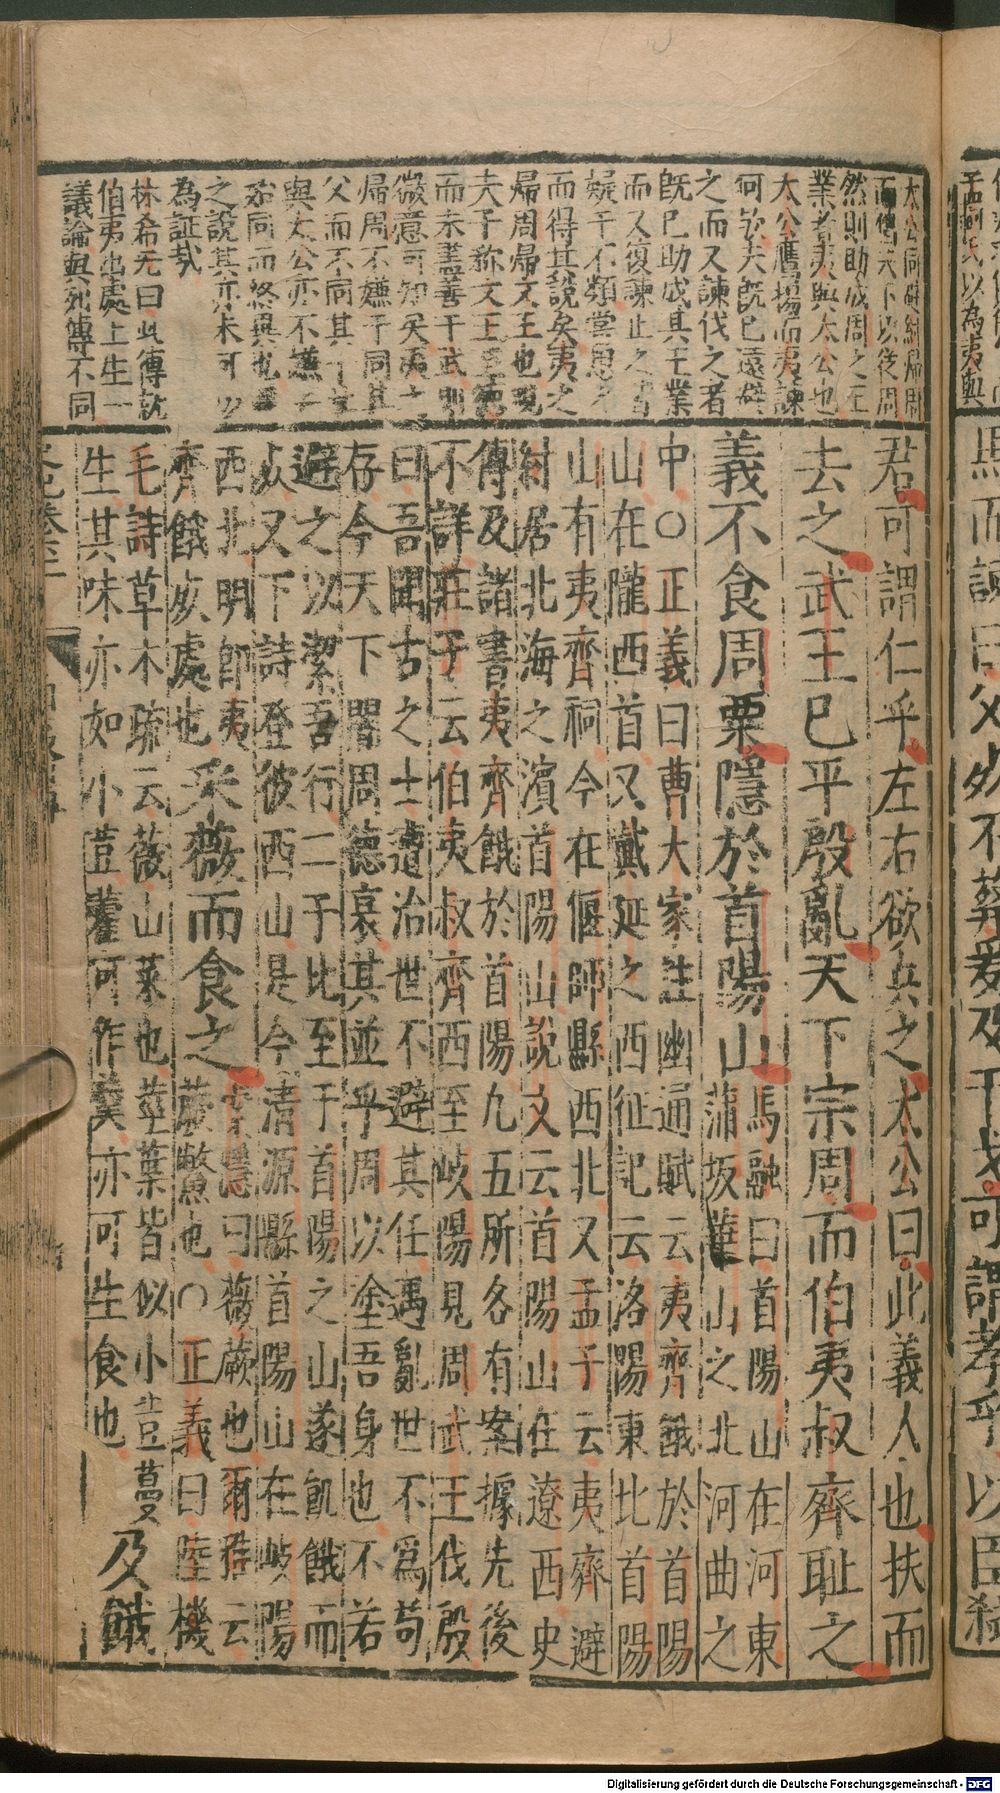 太公同避紂歸周
然則助成周之王
業者夷與太公也
太公鷹揚而夷諫
何哉夫既已遠避
之而又諫伐之者
既已助成其王業
而又復諫止之
疑于不類嘗思之
而得其說矣夷之
歸周歸文王也觀
夫子稱文王至德
而未盡善于武則
微意可知矣夷之
歸周不嫌于同其
父而不同其子
與太公亦不嫌于
始同而終異也
之說其亦未可以
為証哉
林希元曰此傳敘
伯夷也處上生一
議論與列傳不同
君可謂仁乎左右欲兵之太公曰此義人也扶而
去之武王已平殷亂天下宗周而伯夷叔齊恥之
義不食周粟隱於首陽山
馬融曰首陽山在河東
蒲坂華山之北河曲之
中○正義曰曹大家注幽通賦云夷齊餓於首陽
山在隴西首又戴延之西征記云洛陽東北首陽
山有夷齊祠今在偃師縣西北又孟子云夷齊避
紂居北海之濱首陽山說文云首陽山在遼西史
傳及諸書夷齊餓於首陽九五所各有案據先後
不詳莊子云伯夷叔齊西至岐陽見周武王伐殷
曰吾聞古之士遭治世不避其任遇亂世不爲苟
存今天下闇周德衰其並乎周以塗吾身也不若
避之以潔吾行二子北至于首陽之山遂飢餓而
歿又下詩登彼西山是今清源縣首陽山在岐陽
西北明卽夷
齊餓歿處也
采薇而食之
索隱曰薇蕨也爾雅云
蕨虌也○正義曰陸機
毛詩草木疏云薇山菜也莖葉皆似小豆蔓
生其味亦如小荳藿可作羹亦可生食也
及餓
馬而諫曰父死不葬爰及干戈可謂孝乎以臣弒
孟軻氏以為夷與
Digitalisierung gefördert durch die Deutsche Forschungsgemeinschaft - DFG